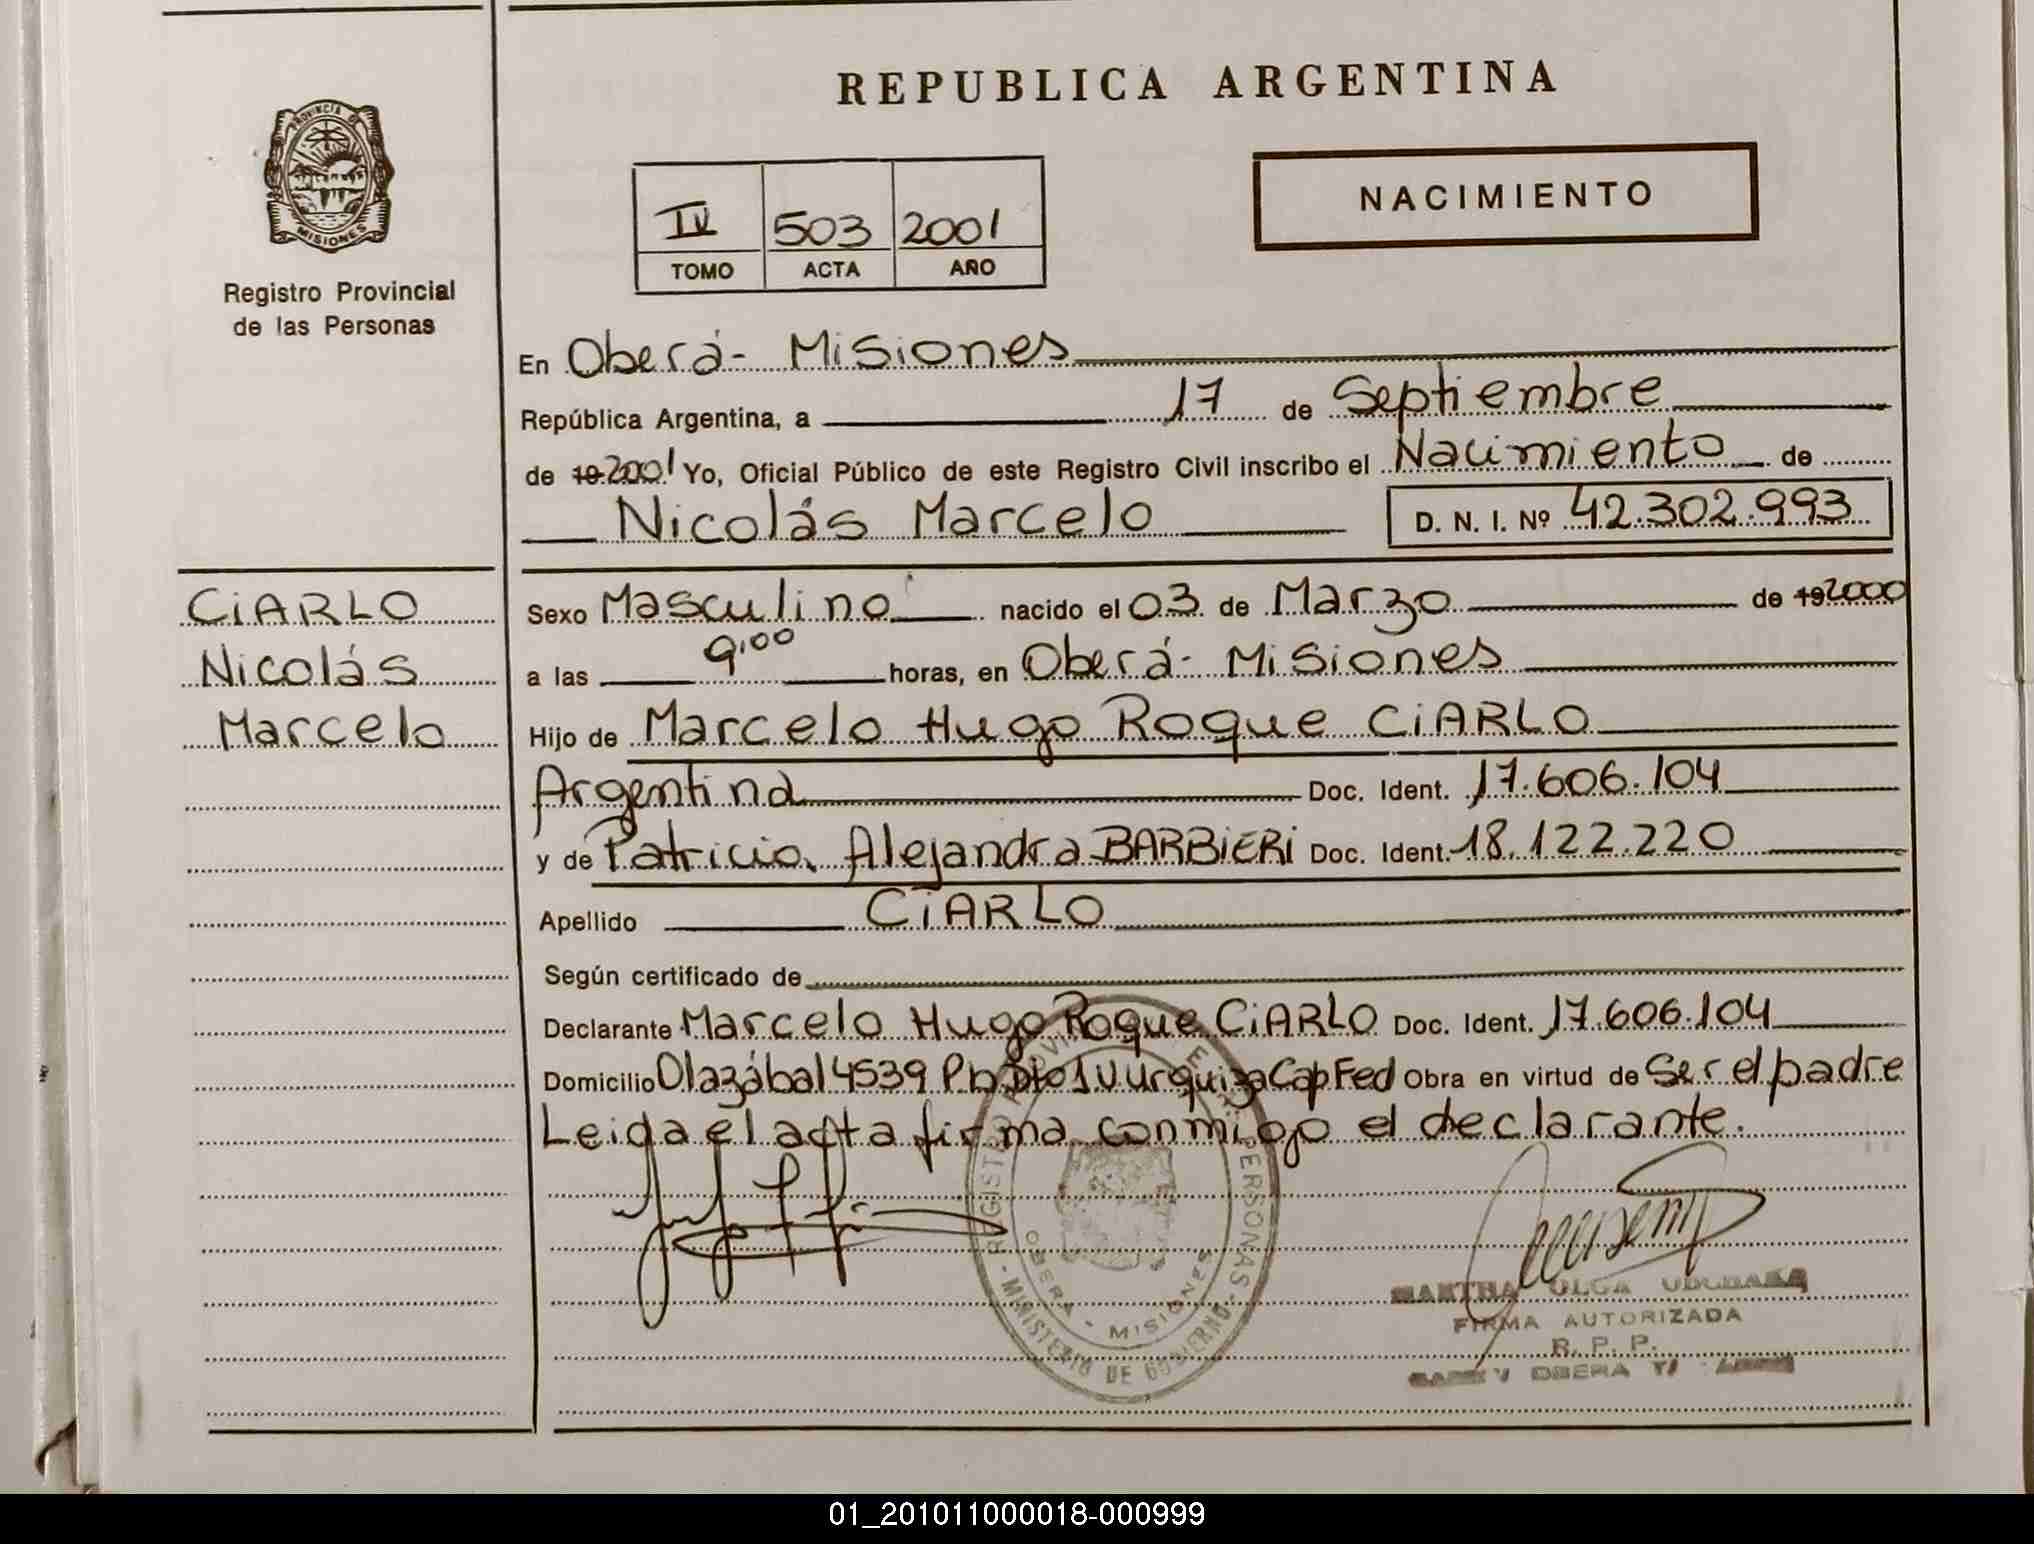 REPUBLICA ARGENTINA
PROVINCIA DE
MISIONES
Registro Provincial
de las Personas
IV 503 2001
TOMO ACTA AÑO
NACIMIENTO
En Oberá - Misiones
República Argentina, a 17 de Septiembre
de 19 2001 Yo, Oficial Público de este Registro Civil inscribo el Nacimiento de
Nicolás Marcelo D. N. I. Nº 42.302.993
CiARLO
Nicolás
Marcelo
Sexo Masculino nacido el 03 de Marzo de 19 2000
a las 9,00 horas, en Oberá - Misiones
Hijo de Marcelo Hugo Roque CiARLO
Argentina Doc. Ident. 17.606.104
y de Patricia Alejandra BARBiERi Doc. Ident. 18.122.220
Apellido CiARLO
Según certificado de
Declarante Marcelo Hugo Roque CiARLO Doc. Ident. 17.606.104
Domicilio Olazábal 4539 Pb Dto 1 V Urquiza Cap Fed Obra en virtud de Ser el padre
Leida el acta firma conmigo el declarante.
REGISTRO PERSONAS - MINISTERIO DE GOBIERNO -
OBERA - MISIONES
MARTHA OLGA
FIRMA AUTORIZADA
R. P. P.
OBERA
01_201011000018-000999